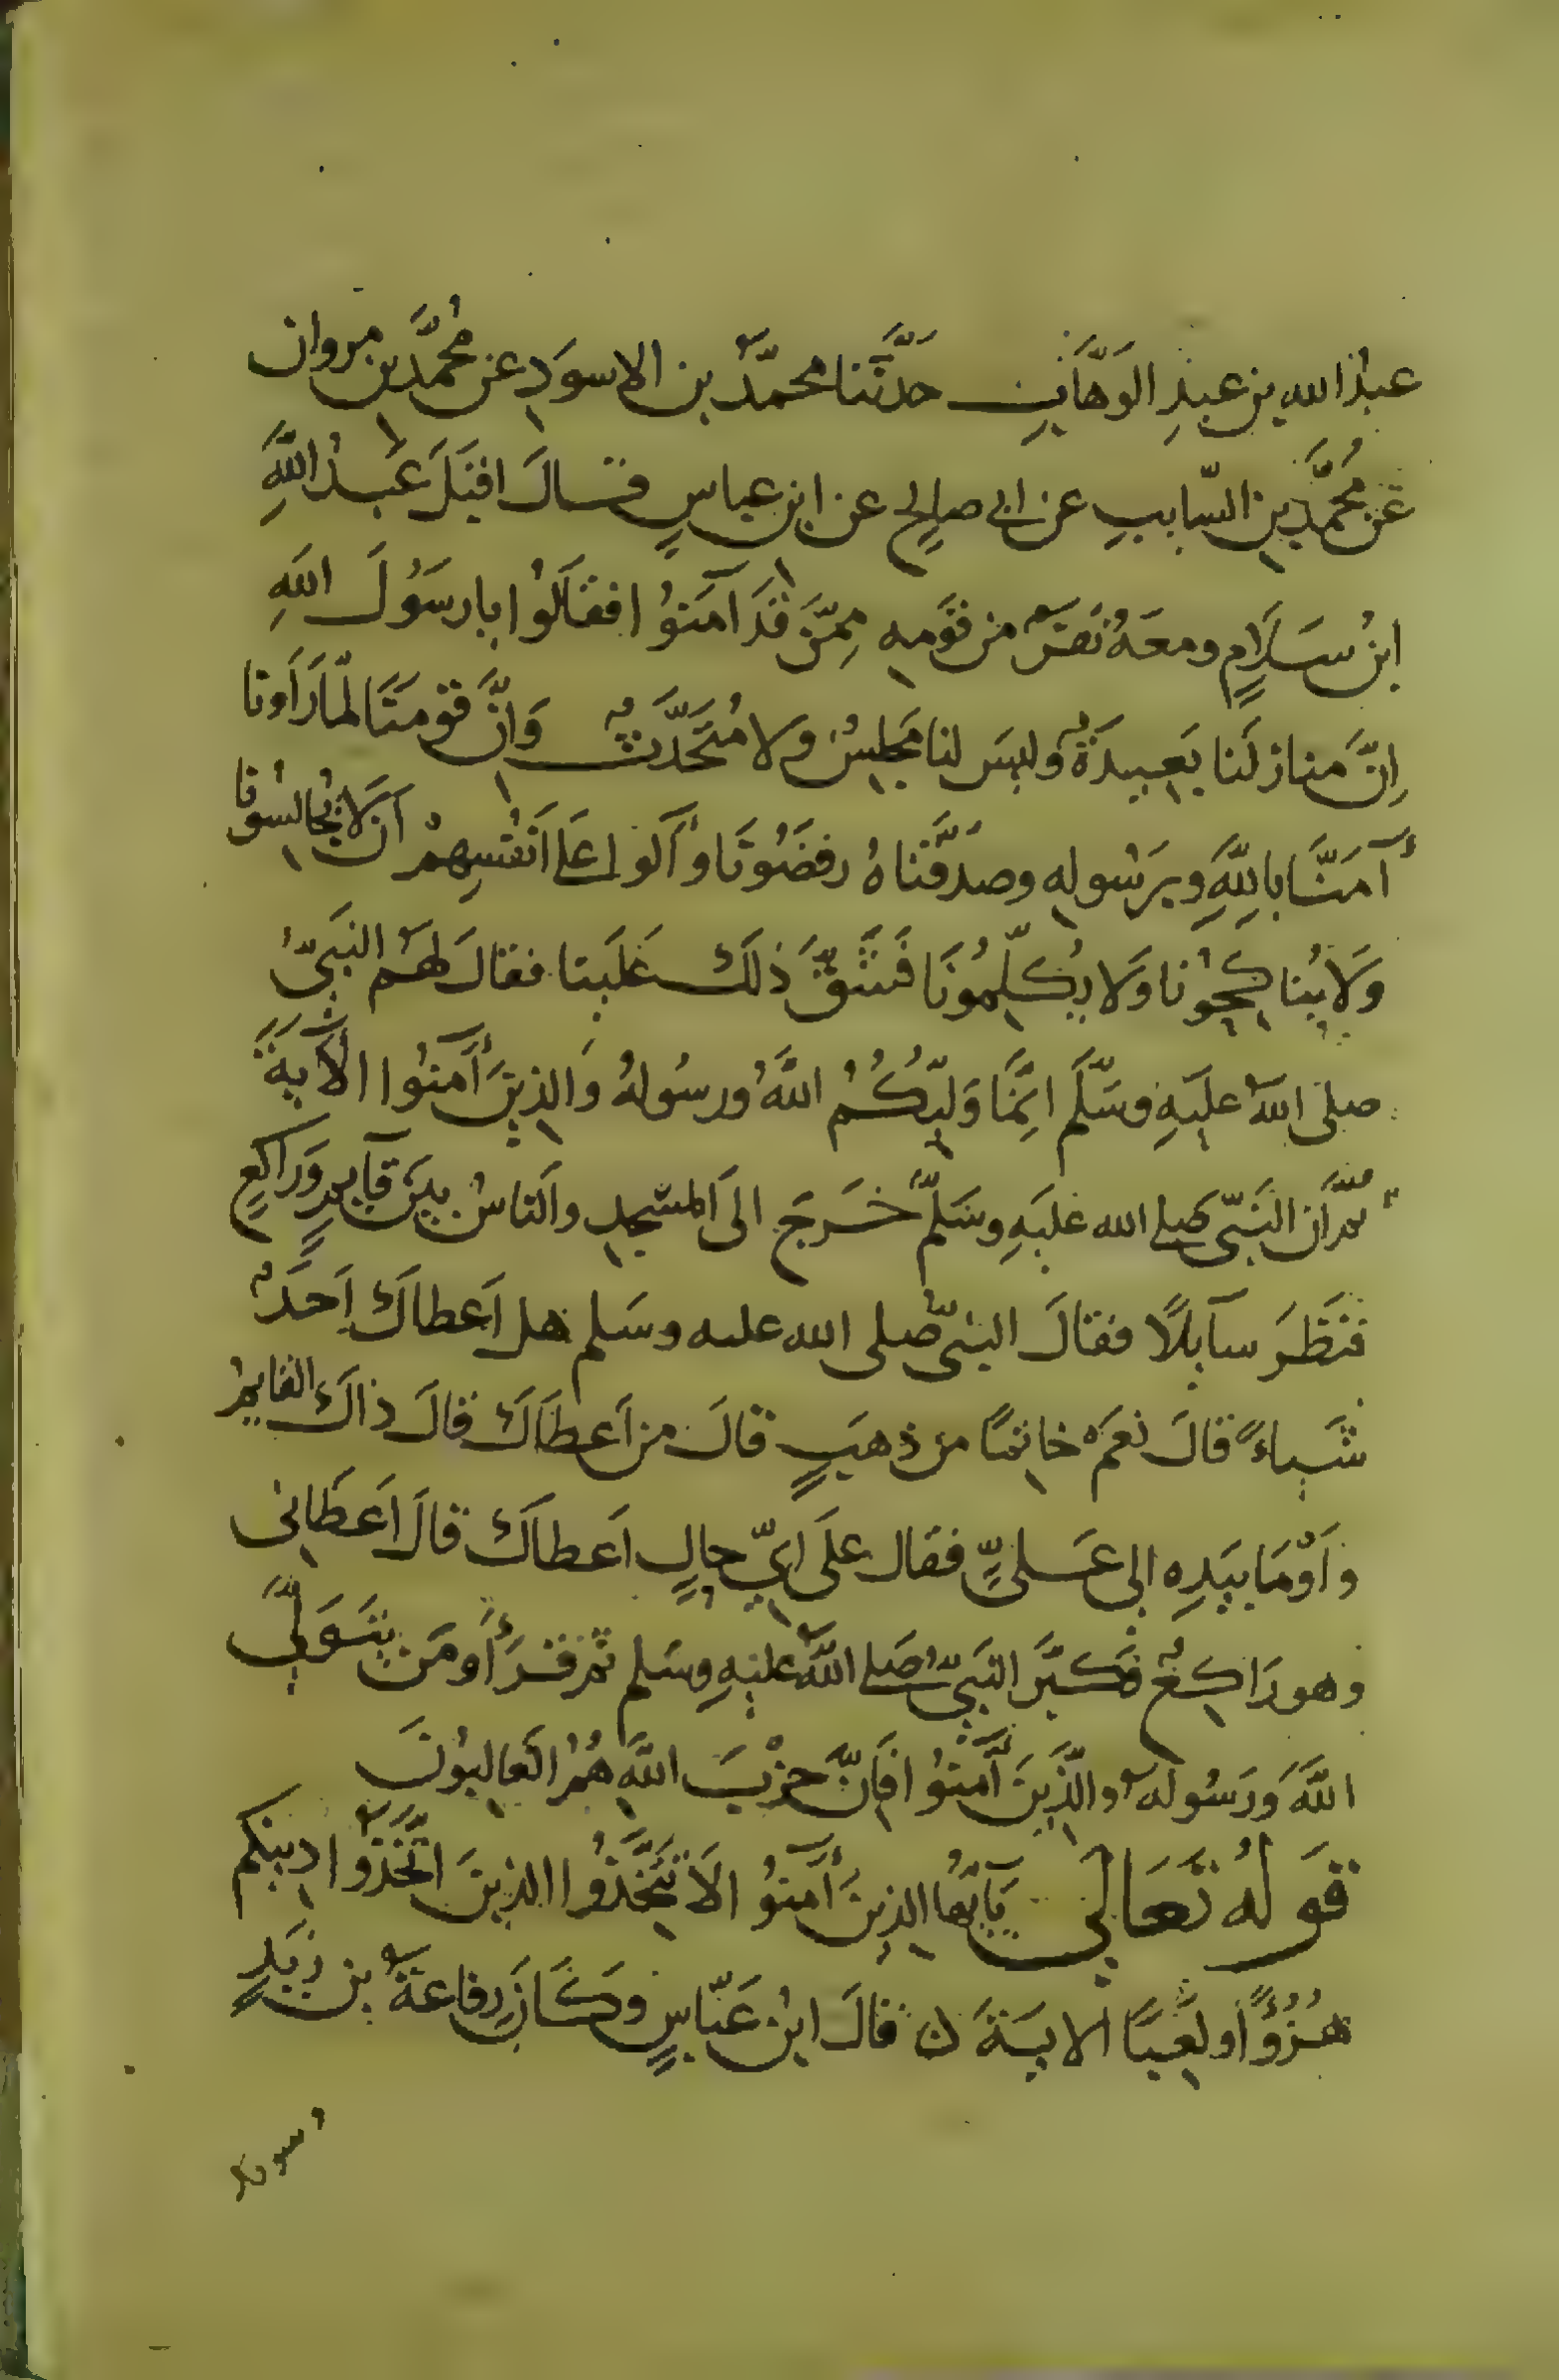 عبدُ الله بن عبدِ الوَهَّابِ حَدَّثَنا محمدٌ بن الاسوَدِ عن مُحمَّد بن مروان
عَن مُحمَّد بن السّايبِ عن ابى صالِحٍ عن ابن عباسٍ قال اقبَلَ عَبدُ اللَّهِ
ابنُ سَلَامٍ ومعَهُ نَفَرٌ من قَومِهِ مِمَّن قَد آمَنوُا فقَالَوُا يا رسَوُلَ اللَّهِ
اِنَّ منازلَنا بَعِيدَةٌ وليسَ لنا مَجلِسٌ ولا مُتَحَدَّثٌ وَانَّ قومَنَا لمّا رَأَونا
آمَنَّا بِاللَّهِ وبِرَسُولِهِ وصَدَّقنَاهُ رفضَوُنَا وآلَوا عَلَى اَنفُسِهِمْ اَن لا يُجالِسُونا
وَلَا يُناكِحُونا وَلَا يُكلّمُونَا فَشَقَّ ذلك عَلَينا فقالَ لهَم النَبىُّ
صلى اللهُ عليَهِ وسَلَّم اِنَّمَا وَليّكُمُ اللَّهُ ورسُولهُ وَالذِينَ آمَنُوا الآيَةَ
ثمَّ اَنّ النَبّىَ صلى الله عليَهِ وسَلمَّ خَرَجَ الىَ المسَجِدِ والنَاسُ بَينَ قآيِمٍ وَرَاكعٍ
فَنَظَرَ سآيلًا فقالَ النبىّ صلى الله عليه وسَلم هل اَعطاكَ اَحَدٌ
شَياءً قالَ نعَمْ خاتماً من ذهَبٍ قالَ من اَعطَاكَ قالَ ذاكَ القايمُ
واَوْمَا بيَدِه اِلى عَلىٍّ فقال علَى اىّ حالٍ اَعطاكَ قالَ اَعَطَانِى
وهو رَاكِعٌ فكبَّرَ النَبىُّ صَلى اللَّهُ عليهِ وسَلم ثم قَرَأَ ومَن يَتَوَلَّ
اللَّهَ وَرَسُولهُ والذِّينَ آمَنُوُا فَاِنَّ حِزْبَ اللَّهِ هُمُ الغَالِبوُنَ
قَولهُ تَعَالى يَايّهُا الذِينَ آمَنوُا لاَ تَتَّخَّذُوا الذِينَ اتَّخَذُوا دِينكم
هُزُؤًا ولَعِبًا الاية ن قالَ ابنُ عَبّاسٍ وَكَانَ رِفاعَةُ بن زيَدٍ